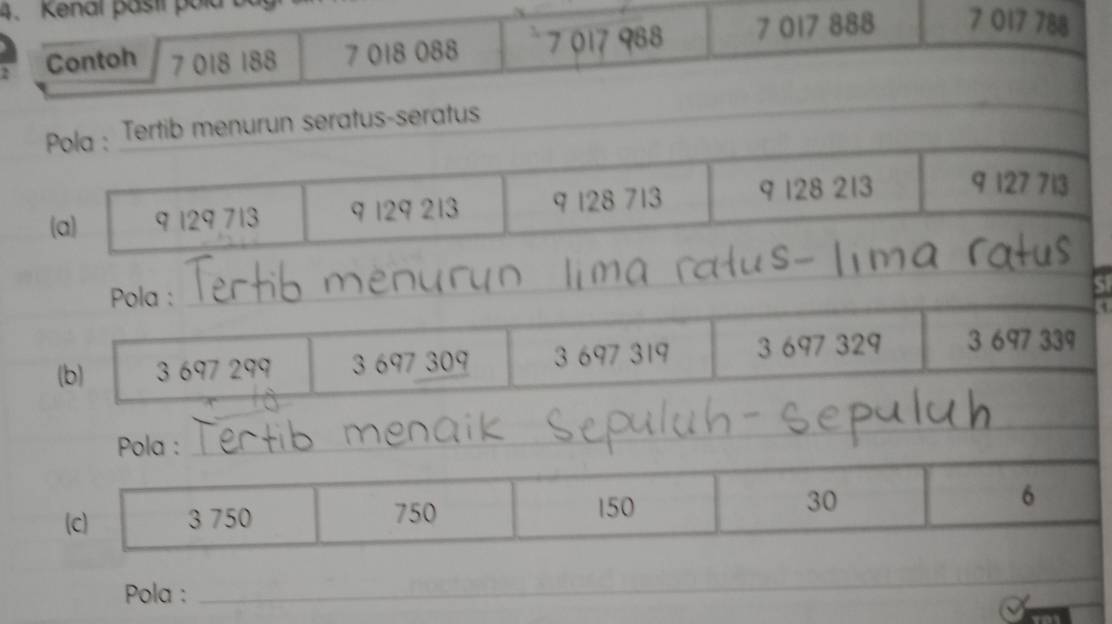 4. Kenal pasti pola
Contoh 7 018 188 7 018 088 7 017 988 7 017 888 7 017 788
Pola : Tertib menurun seratus-seratus
(a) 9 129 713 9 129 213 9 128 713 9 128 213 9 127 713
Pola : Tertib menurun lima ratus-lima ratus
(b) 3 697 299 3 697 309 3 697 319 3 697 329 3 697 339
+ 10
Pola : Tertib menaik sepuluh-sepuluh
(c) 3 750 750 150 30 6
Pola :